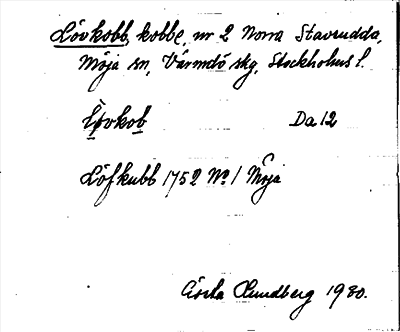 Lövkobb, kobbe, nr 2 Norra Stavsudda,
Möja sn, Värmdö skg, Stockholms l.
Lövkob Da 12
Löfkubb 1752 No 1 Möja
Gösta Lundberg 1930.